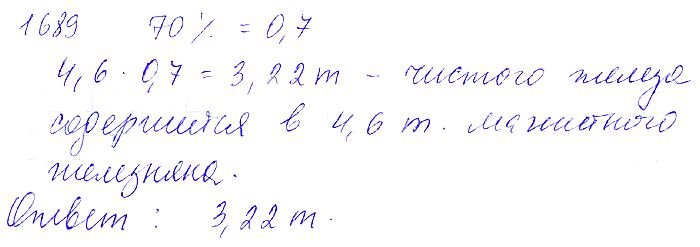 1689 70% = 0,7
4,6 · 0,7 = 3,22 т – чистого железа
содержится в 4,6 т. магнитного
железняка.
Ответ : 3,22 т.